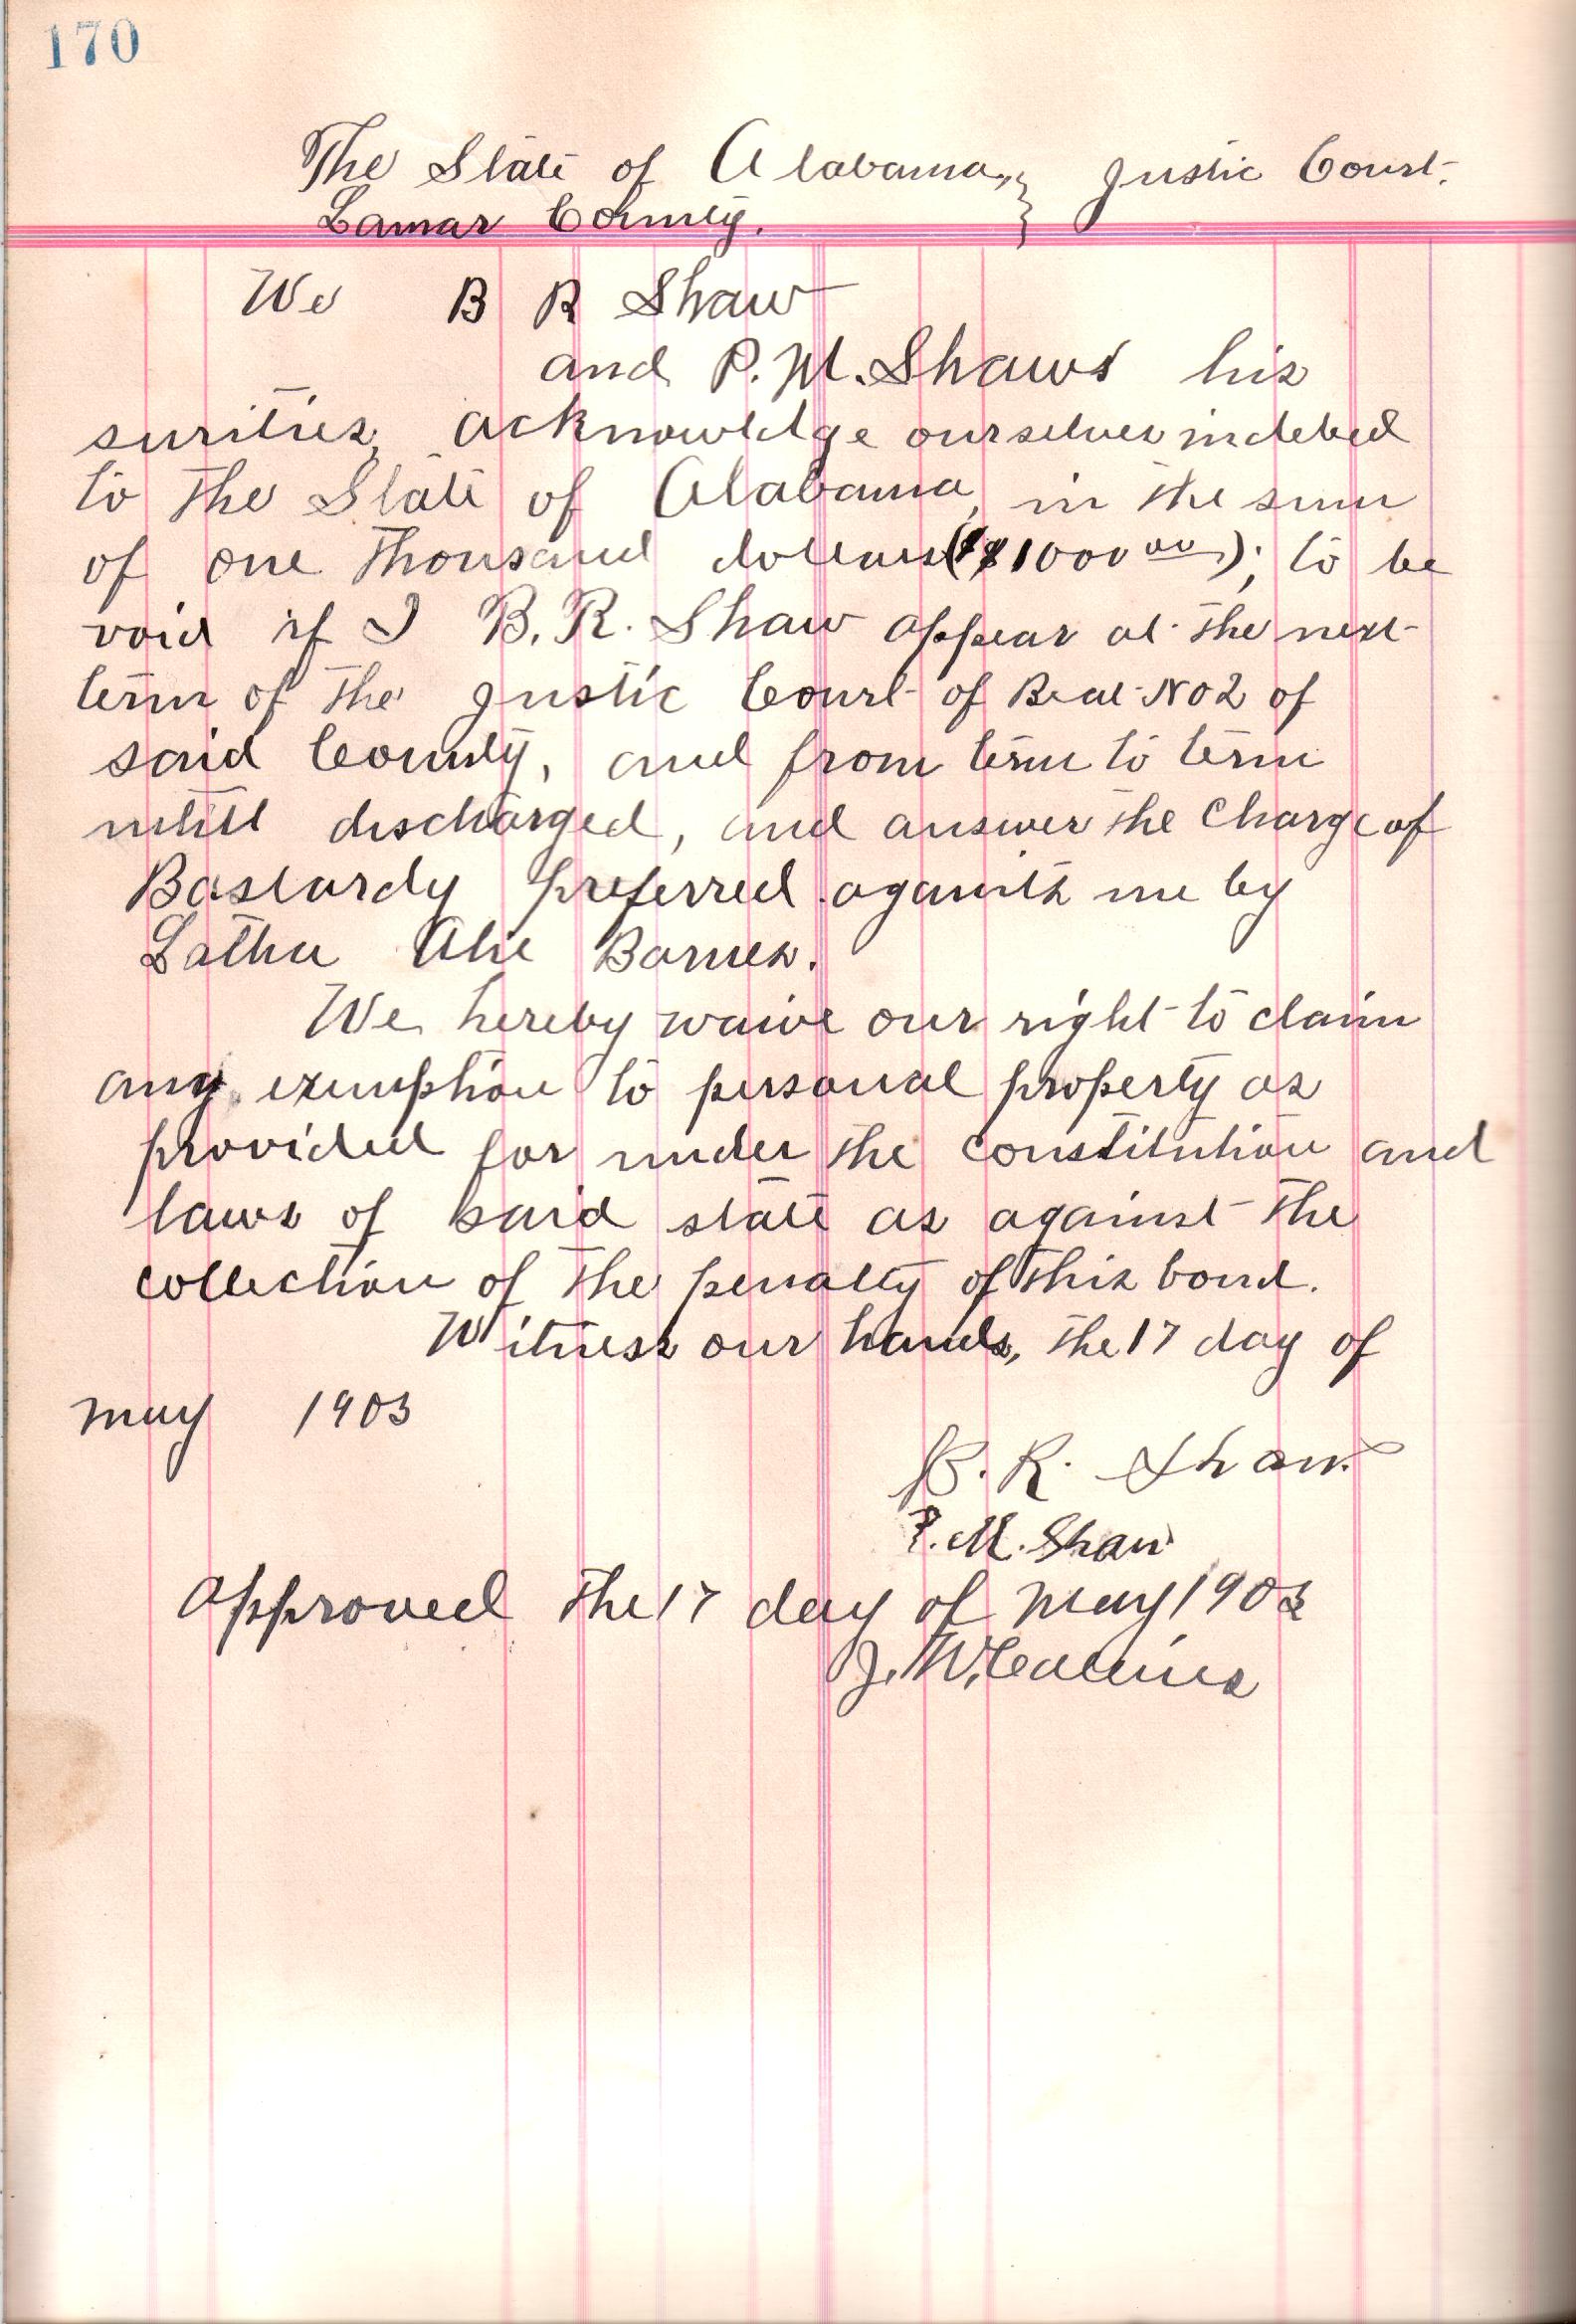 170
The State of Alabama, } Justic Court.
Lamar County.
We B R Shaw
and P. M. Shaws his
surities, acknowldge ourselves indebed
to the State of Alabama, in the sum
of one thousand dollars ($1000 00); to be
void if I B. R. Shaw appear at the next
term of the Justic Court of Beat No 2 of
said County, and from term to term
untill discharged, and answer the Charge of
Bastardy preferred against me by
Barnes.
We hereby waive our right to claim
any exemption to personal property as
provided for under the constitution and
laws of said state as against the
collection of the penalty of this bond.
Witness our hands, the 17 day of
may 1903
B. R. Shaw
P. M. Shaw
approved the 17 day of may 1903
J. W. Collins